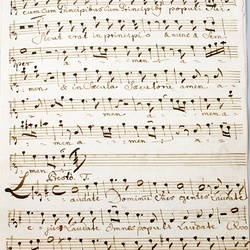 cum cum Principibus cum Principibus populi
Sicut erat in principio & nunc & Sem
per a men a
men & in Sæcula Sæculorum amen a
men a men a
men
Laudate Dominum omnes gentes Laudate
e jus Laudate Omnes populi Laudate